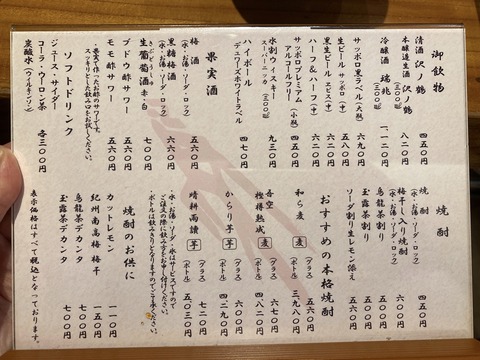 御飲物
清酒 沢ノ鶴 四五〇円
本醸造生酒 沢ノ鶴 (300ml) 八二〇円
冷酒 瑞兆 (300ml) 一、一二〇円
サッポロ黒ラベル(大瓶) 六九〇円
生ビール サッポロ(中) 五八〇円
黒生ビール ヱビス(中) 六二〇円
ハーフ&ハーフ(中) 六二〇円
サッポロプレミアム(小瓶)
アルコールフリー 四五〇円
水割ウィスキー (300ml)
スーパーニッカ 九三〇円
ハイボール
デュワーズホワイトラベル 四七〇円
果実酒
梅酒
(水・お湯・ソーダ・ロック) 五六〇円
黒糖梅酒
(水・お湯・ソーダ・ロック) 六六〇円
生葡萄酒 赤・白 七〇〇円
ブドウ酢サワー 五六〇円
モモ酢サワー 五六〇円
果実で作ったお酢のサワーです。
スッキリとした飲み口をお試しください。
ソフトドリンク
ジュース・サイダー
コーラ・ウーロン茶
炭酸水(ウィルキンソン) 各三〇〇円
焼酎
焼酎
(水・お湯・ソーダ・ロック) 四五〇円
梅干し入り焼酎
(水・お湯・ソーダ・ロック) 六〇〇円
烏龍茶割り 五〇〇円
玉露茶割り 五〇〇円
ソーダ割り生レモン添え 五六〇円
おすすめの本格焼酎
和ら麦 麦 (グラス) 五六〇円
(ボトル) 三、九八〇円
吾空
樫樽熟成 麦 (グラス) 六七〇円
(ボトル) 四、八二〇円
からり芋 芋 (グラス) 六二〇円
(ボトル) 四、二九〇円
晴耕雨讀 芋 (グラス) 七二〇円
(ボトル) 五、〇三〇円
・水・お湯・ソーダ・氷はサービスですので
ご注文の際に飲み方をお申し付けください。
・ボトルは飲みきりとなりますのでご了承ください。
焼酎のお供に
カットレモン 一一〇円
紀州南高梅 梅干 一五〇円
烏龍茶デカンタ 七〇〇円
玉露茶デカンタ 七〇〇円
表示価格はすべて税込となっております。